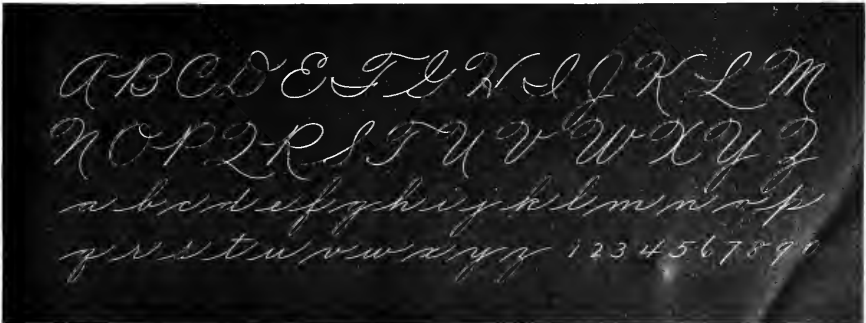 A B C D E F G H I J K L M
N O P Q R S T U V W X Y Z
a b c d e f g h i j k l m n o p
q r s t u v w x y z 1 2 3 4 5 6 7 8 9 0